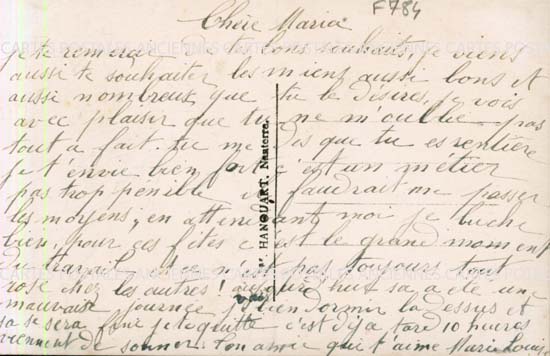 F784
Chère Maria
je te remercie de tes bons souhaits, je viens
aussi te souhaiter les miens aussi bons et
aussi nombreux que tu le désires, je vois
avec plaisir que tu ne m'oublie pas
tout a fait. tu me dis que tu es rentière
je t'envie bien fort c'est un métier
pas trop penible il faudrait me passer
les moyens, en attendant moi je buche
bien, pour ces fêtes c'est le grand moment
du travail, et ce n'est pas toujours tout
rose chez les autres! aujourd'huit sa a été une
mauvaise journée je vien dormir la dessus et
sa se sera fini je te quitte c'est déja tard 10 heures
viennent de sonner. ton amie qui t'aime Marie Louise
HANQUART. Nanterre.